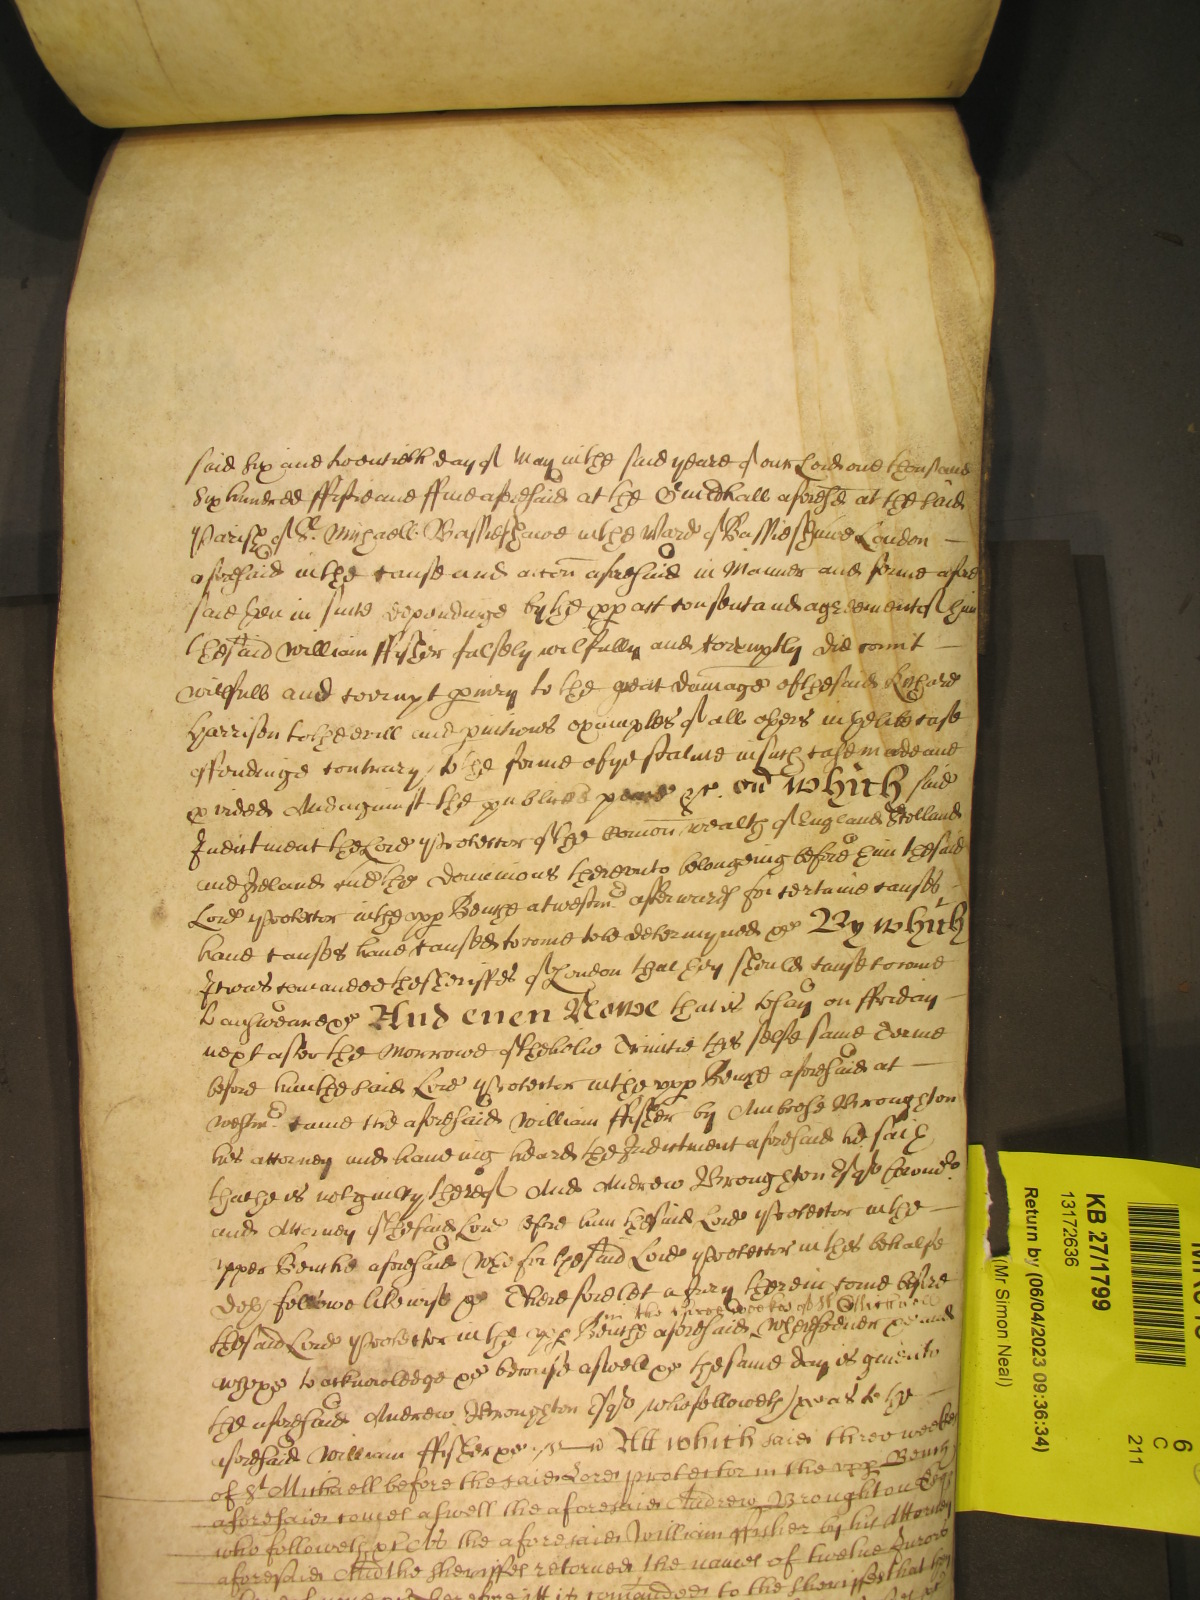 said Six and twentieth day of May in the said yeare of our Lord one thousand
Six hundred ffiftie and ffive aforesaid at the Guildhall aforesd at the said
Parish of St. Michaell Bassieshawe in the Ward of Bassieshawe London
aforesaid in the cause and accon aforesaid in Manner and forme afore
said then in suite dependinge by the consent and agreement of him
the said William ffisher falsely wilfully and corruptly did comit
wilfull and corrupt to the great damage of the said Richard
Harrison to the evill and examples of all others in the like case
offendinge contrary to the forme of ye statute in such case made and
pvided And against the publick peace &c. on which said
Indictment the Lord Protector of the Comon wealth of England Scotland
and Ireland and the Dominions thereunto belongeing before him the said
Lord Protector in the upp Bench at westmr afterwards for certaine causes
have caused to come to be determyned &c By which
It was comanded the sheriffes of London that they should cause to come
to answeare &c And even Nowe that is to say on ffriday
next after the Morrowe of the holie Trinitie this selfe same Terme
before him the said Lord Protector in the upp Bench aforesaid at
westmr. came the aforesaid William ffisher by Ambrose Broughton
his attorney and haveing heard the Indictment aforesaid he saith
that he is not guilty thereof And Andrew Broughton Esqr
and Attorney of the said Lord before him the said Lord Protector in the
upper Bench aforesaid who for the said Lord Protector in this behalfe
doth followe likewise &c Therefore let a Jury therein come before
in the three weekes of St Michaell
the said Lord Protector in the upp Bench aforesaid wheresoever &c and
who &c to acknowledge &c because aswell &c the same day is given to
the aforesaid Andrew Broughton Esqr who followeth &c as to the
aforesaid William ffisher &c Att which said three weekes
of St Michaell before the said Lord protector in the upp Bench
aforesaid comes aswell the aforesaid Andrew Broughton Esqr
who followeth &c as the aforesaid William ffisher by his Attorney
aforesaid And the sheriffes returned the names of twelve Jurors
Therefore itt is comanded to the sheriffes that they
KB 27/1799
13172636
Return by (06/04/2023 09:36:34)
(Mr Simon Neal)
6
C
211